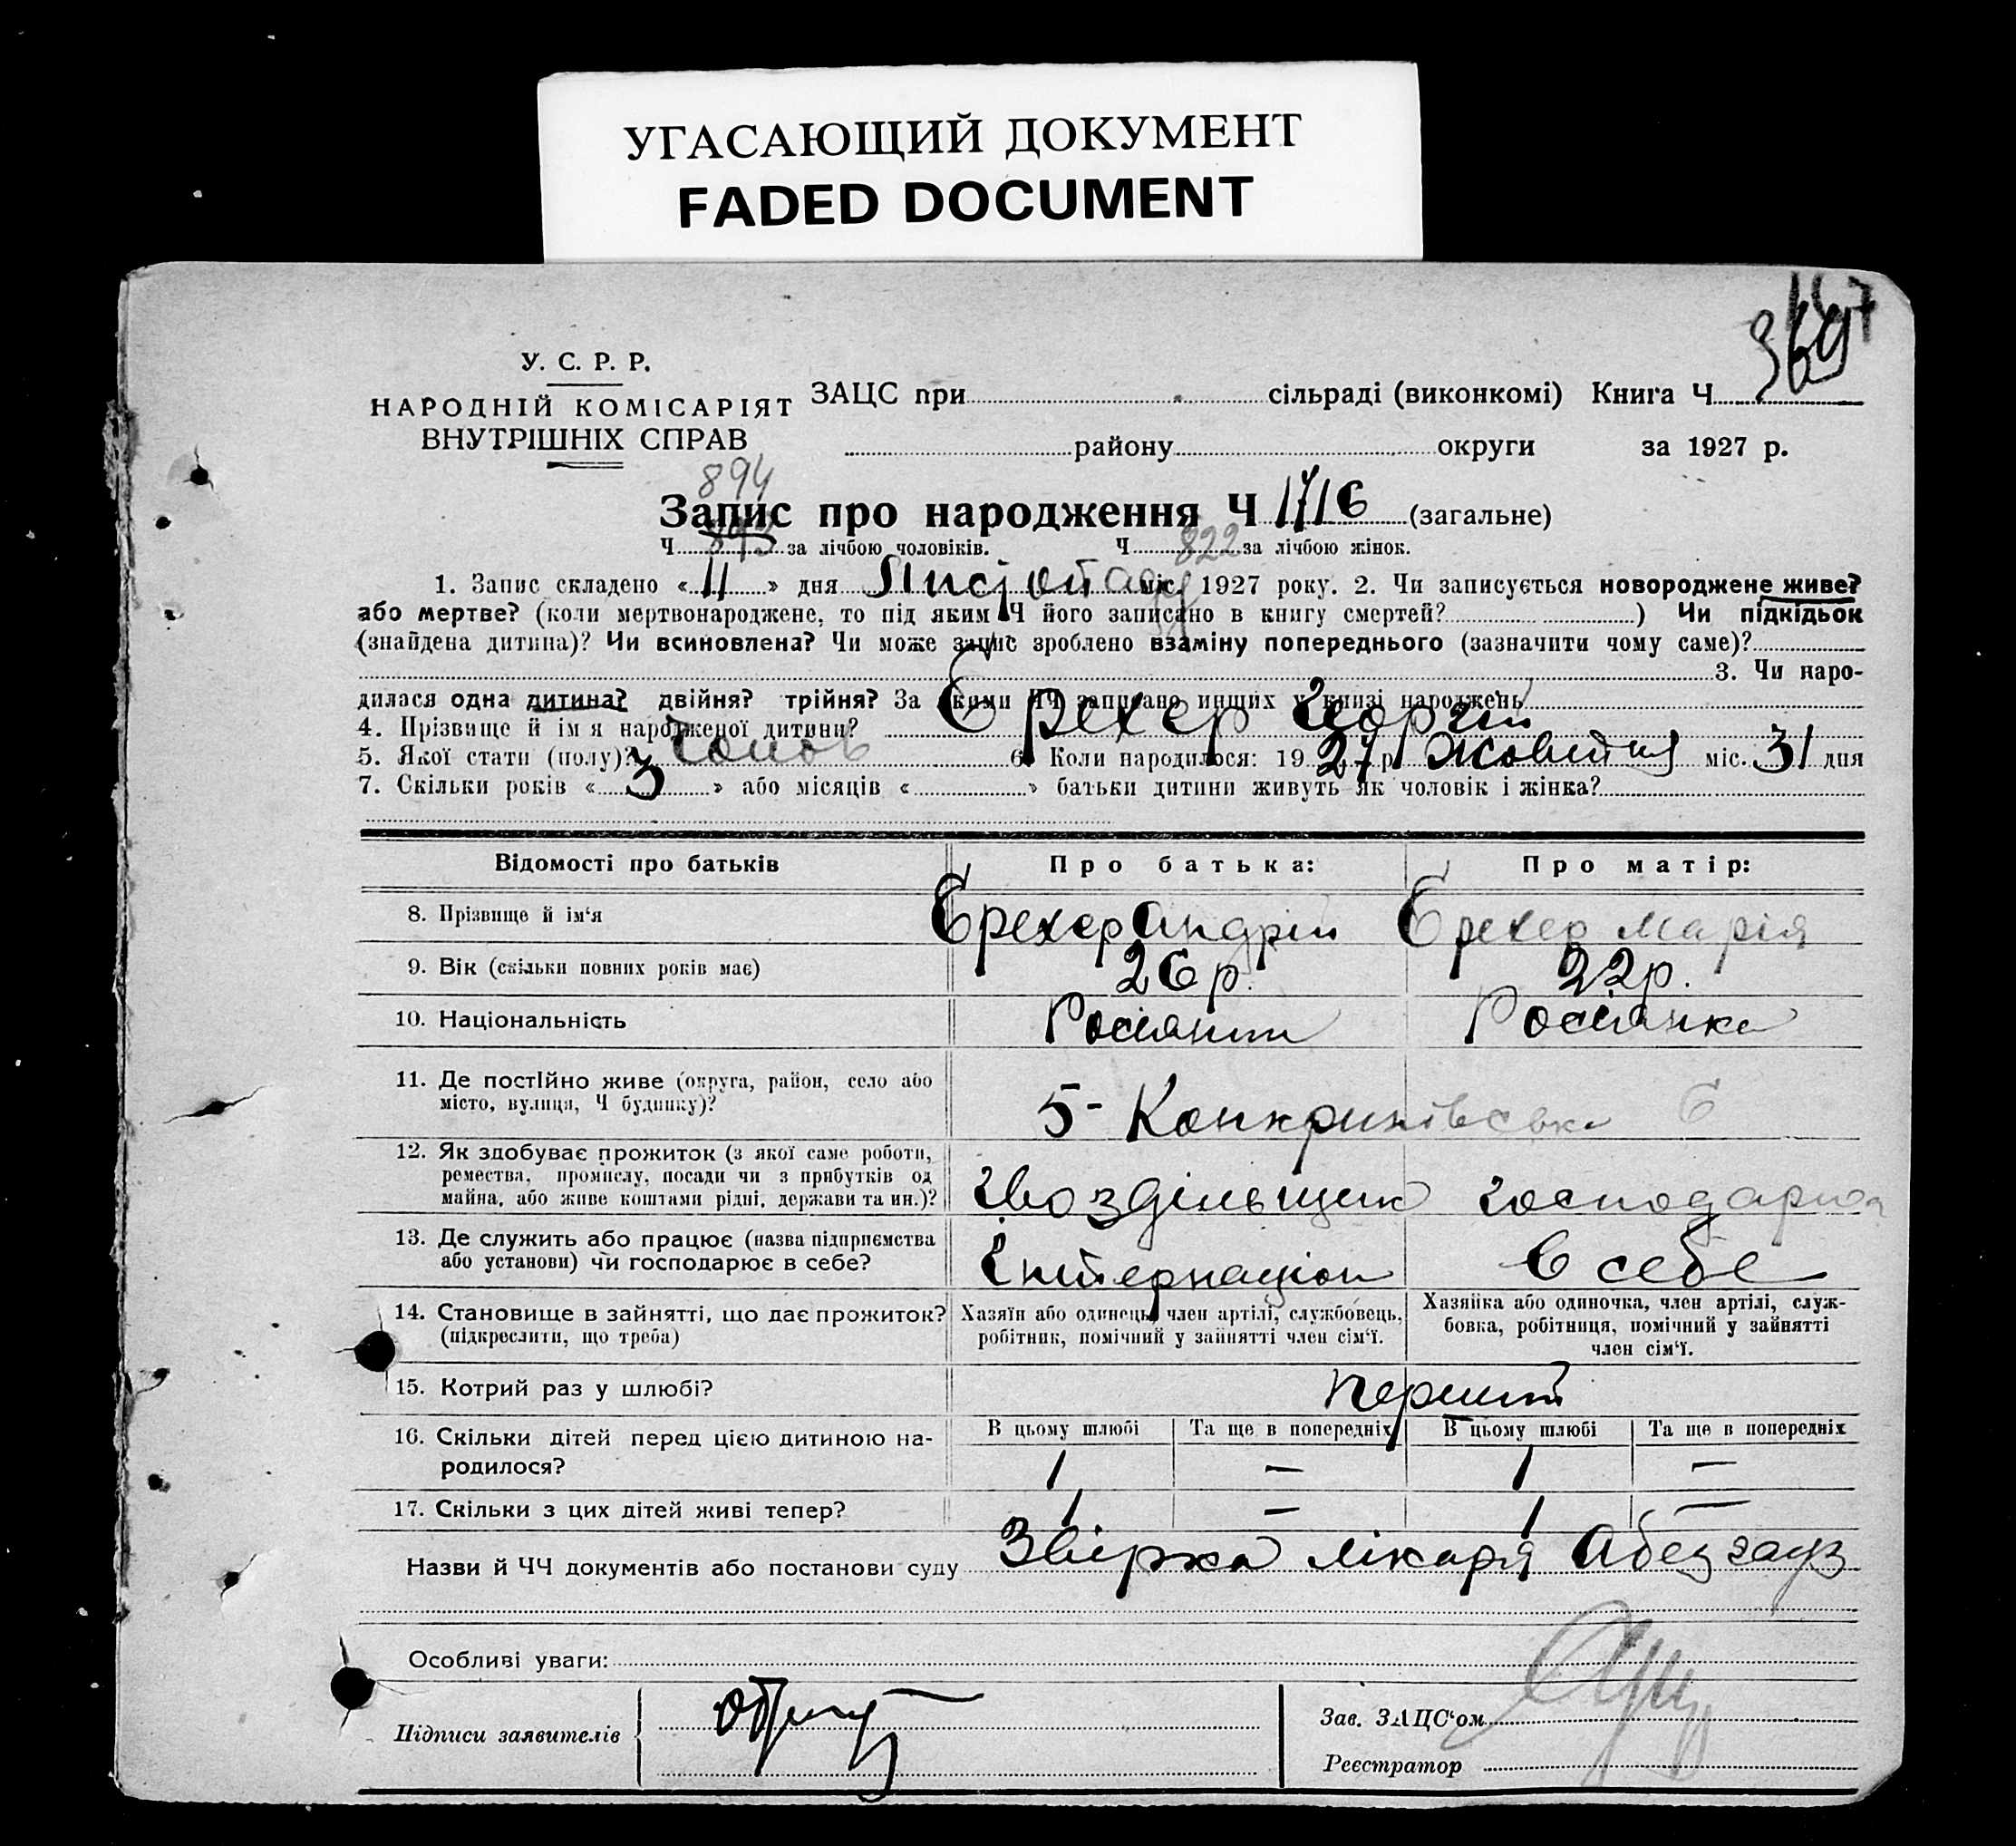 УГАСАЮЩИЙ ДОКУМЕНТ
FADED DOCUMENT
У. С. Р. Р.
НАРОДНІЙ КОМІСАРІЯТ
ВНУТРІШНІХ СПРАВ
ЗАЦС при сільраді (виконкомі) Книга Ч 369
району округи за 1927 р.
894
Запис про народження Ч 1716 (загальне)
Ч 893 за лічбою чоловіків. Ч 822 за лічбою жінок.
1. Запис складено « 11 » дня Листопаду міс. 1927 року. 2. Чи записується новороджене живе?
або мертве? (коли мертвонароджене, то під яким Ч його записано в книгу смертей? ) Чи підкідьок
(знайдена дитина)? Чи всиновлена? Чи може запис зроблено взаміну попереднього (зазначити чому саме)?
3. Чи наро-
дилася одна дитина? двійня? трійня? За якими ЧЧ записано инших у книзі народжень
4. Прізвище й ім я народженої дитини? Ерехер Георгій
5. Якої стати (полу)? чолов 6. Коли народилося: 1927 р. Жовтня міс. 31 дня
7. Скільки років « 3 » або місяців « » батьки дитини живуть як чоловік і жінка?
Відомості про батьків Про батька: Про матір:
8. Прізвище й ім'я Ерехер Андрій Ерехер Марія
9. Вік (скільки повних років має) 26 р. 22 р.
10. Національність Росіянин Росіянка
11. Де постійно живе (округа, район, село або
місто, вулиця, Ч будинку)? 5- Конкринівська 6
12. Як здобуває прожиток (з якої саме роботи,
ремества, промислу, посади чи з прибутків од
майна, або живе коштами рідні, держави та ин.)? Гвоздільщик господарка
13. Де служить або працює (назва підприємства
або установи) чи господарює в себе? Інтернаціон в себе
14. Становище в зайнятті, що дає прожиток?
(підкреслити, що треба)
Хазяїн або одинець, член артілі, службовець,
робітник, помічний у зайнятті член сім'ї.
Хазяйка або одиночка, член артілі, служ-
бовка, робітниця, помічний у зайнятті
член сім'ї.
15. Котрий раз у шлюбі? перший
В цьому шлюбі Та ще в попередніх В цьому шлюбі Та ще в попередніх
16. Скільки дітей перед цією дитиною на-
родилося? 1 — 1 —
17. Скільки з цих дітей живі тепер? 1 — 1 —
Назви й ЧЧ документів або постанови суду Звірка лікаря Абезгауз
Особливі уваги:
Підписи заявителів
Зав. ЗАЦС'ом
Реєстратор